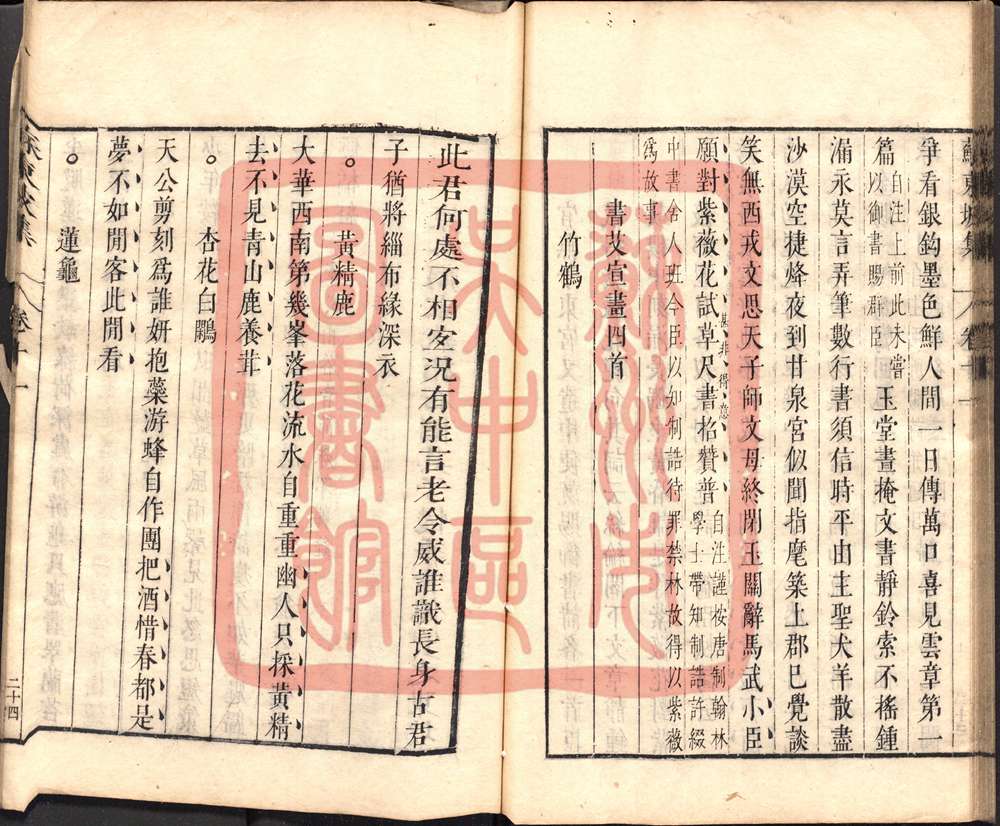 蘇東坡集 卷十一
爭看銀鈎墨色鮮人間一日傳萬口喜見雲章第一
篇自注上前此未嘗以御書賜群臣玉堂晝掩文書靜鈴索不搖鍾
漏永莫言弄筆數行書須信時平由主聖犬羊散盡
沙漠空捷烽夜到甘泉宮似聞指麾築上郡已覺談
笑無西戎文思天子師文母終閉玉關辭馬武小臣
願對紫薇花試草尺書招贊普自注謹按唐制翰林學士帶知制誥許綴
甚非得意
中書舍人班今臣以知制誥待罪禁林故得以紫薇
為故事
書艾宣畫四首
竹鶴
此君何處不相宜況有能言老令威誰識長身古君
子猶將緇布緣深衣
黃精鹿
太華西南第幾峯落花流水自重重幽人只採黃精
去不見青山鹿養茸
杏花白鷴
天公剪刻爲誰妍抱蘂游蜂自作團把酒惜春都是
夢不如閒客此閒看
蓮龜
二十四
蘇州市吳中區圖書館